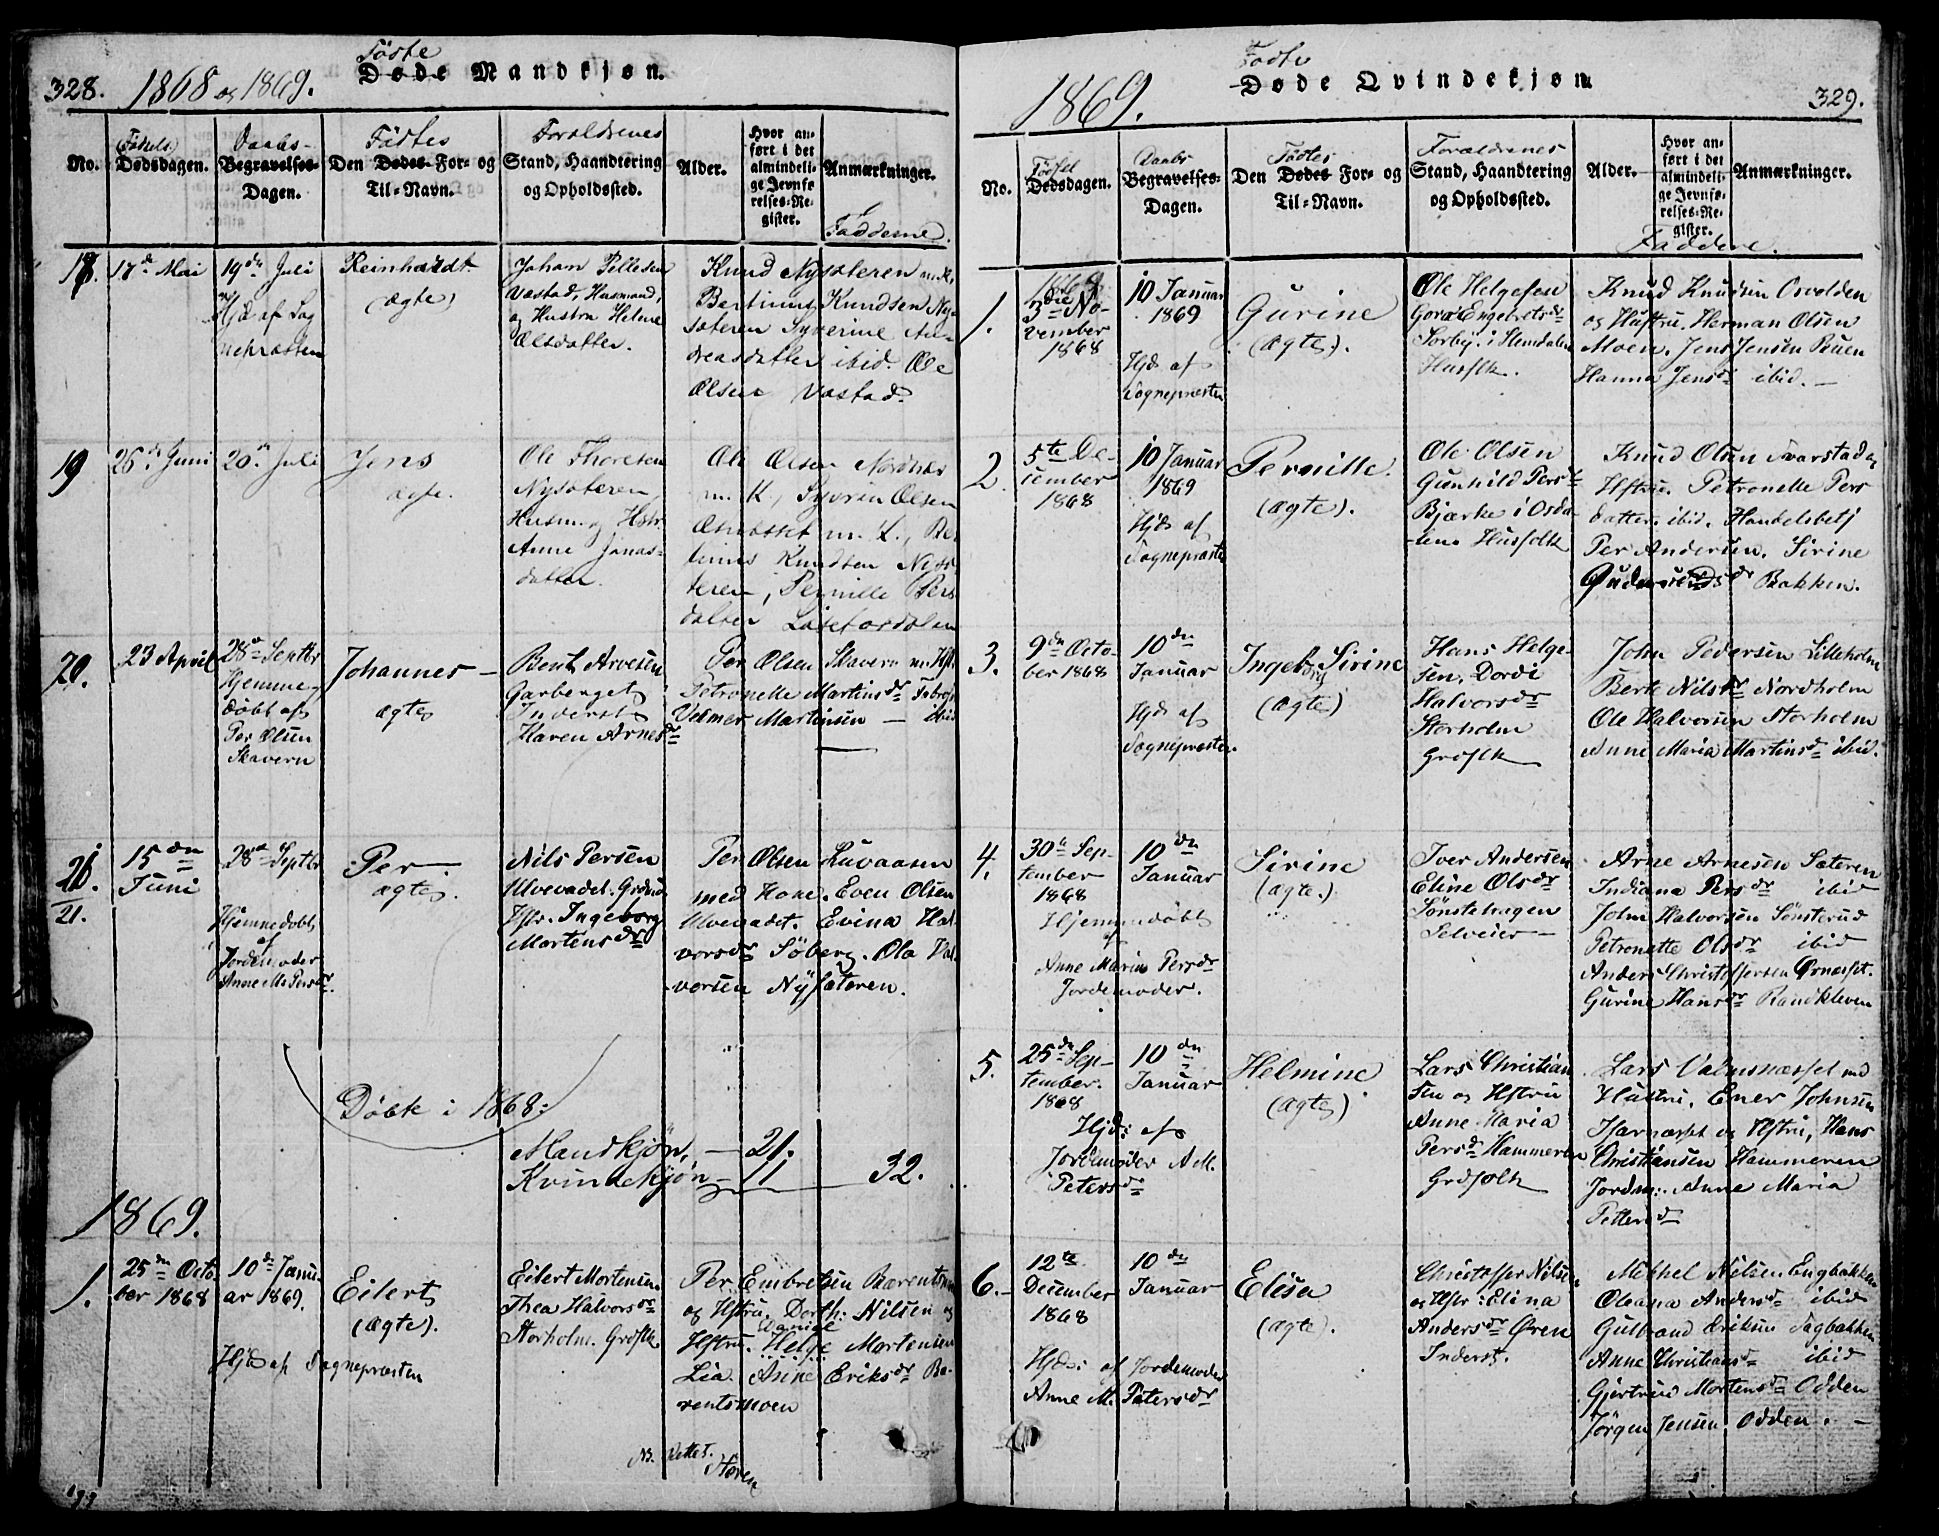 328.
1868 og 1869.
Födte
Døde Mandkjøn.
No.
Födsels
Dødsdagen.
Daabs-
Begravelses-
Dagen.
Födtes
Den Dødes For- og
Til-Navn.
Forældrenes
Stand, Haandtering
og Opholdssted.
Alder.
Hvor an-
ført i det
almindeli-
ge Jevnfø
relses-Re-
gister.
Anmærkninger.
Fadderne.
18.
17de Mai
19de Juli
Hjd. af Sog
nepræsten
Reinhardt
(ægte)
Johan Pellesen
Væstad, Husmand,
og Hustru Helene
Olsdatter.
Knud Nysæteren m. K,
Bertinus Knudsen Ny-
sæteren Syverine An-
dreasdatter ibid. Ole
Olsen Væstad.
19
25de Juni
20de Juli
Jens
ægte.
Ole Thoresen
Nysæteren,
Husm. og Hstr.
Anne Jonas-
datter.
Ole Olsen Nordnæs
m. K., Syvrin Olsen
m. K., Be
tinus Knudsen Nysæ
teren, Pernille Pers
datter
20.
23 April
28de Septbr
Hjemme-
döbt af
Per Olsen
Skavern
Johannes
ægte
Bent Arvesen
Garberget
Inderst
Karen Arnesdr
Per Olsen Skavern m. Hst.
Petronelle Martinsdr
Velmer Martinsen — ibid
21.
21.
15den
Juni
28de Septbr
Hjemmedöbt
af
Jordemoder
Anne M. Persdr.
Per
ægte
Nils Persen
Ulvevadet. Grdmd
Hstr. Ingeborg
Mortensdr
Per Olsen Luvaasen
med Kone. Even Olsen
Ulvevadet. Evina Hal-
vorsdr Söberg. Ola Hal-
vorsen Nysæteren.
Döbte i 1868:
Mandkjön, — 21.
Kvindekjön — 11 32.
1869.
1.
25de Octo
ber 1868
10de Janu-
ar 1869.
Hjd. af Sognepræsten
Eilert
(ægte).
Eilert Mortensen
Thea Halvorsdr
Storholm. Grdfolk.
Per Embretsen Bærentsm
og Hstru. Dorth: Nilsen og
Hstru. Helge Mortensen
Lia. Anne Eriksdr Bæ-
rentsmoen
NB. Vettet.
329.
1869.
Födte
Døde Qvindekjøn
No.
Födsel
Dødsdagen.
Daabs
Begravelses-
Dagen.
Födtes
Den Dødes For- og
Til-Navn.
Forældrenes
Stand, Haandtering
og Opholdssted.
Alder.
Hvor an-
ført i det
almindeli-
ge Jevnfø-
relses-Re-
gister.
Anmærkninger.
Faddere.
1.
3die No-
vember
1868
10 Januar
1869
Hjd. af
Sognepræsten
Gurine
(ægte).
Ole Helgesen
Goro Engebretsdr
Sorby i Slemdalen
Husflk.
Knud Knudsen Osvolden
og Hustru. Herman Olsen
Moen. Jens Jensen Buen
Hanna Jensdr ibid. —
2.
5te De-
cember
1868
10 Januar
1869
Hjd. af
Sognepræsten
Pernille.
(ægte).
Ole Olsen
Gunhild Persdr
Bjærke i Osda-
len. Husfolk
Knud Olsen Svarstad og
Hstru. Petronelle Pers
datter ibid. Handelsbetj
Per Andersen. Sirine
Bakken.
3.
9de Octo-
ber 1868
10den
Januar
Hjd. af
Sognepræsten.
Ingeborg Sirine
(ægte)
Hans Helge-
sen. Dordi
Halvorsdr
Storholm
Grdflk
John Pedersen Lilleholm
Berte Nilsdr Nordholm
Ole Halvorsen Storholm
Anne Maria Martinsdr ibid.
4.
30te Sep-
tember
1868
10den
Januar
Hjemmedöbt
af
Anne Maria Persdr
Jordemoder.
Sirine
(ægte.)
Iver Andersen
Eline Olsdr
Sönstehagen
Selveier —
Arne Arnesen Sæteren
Indiana Persdr ibid
John Halvorsen Sönsterud
Petronette Olsdr ibid
Anders Christoffersen Ørnæsset.
Gurine Hansdr Randkleven
5.
25de Sep-
tember.
1868
10den
Januar
Hjd: af
Jordemoder A. M.
Petersdr
Helmine
(ægte)
Lars Christian
sen og Hstru
Anne Maria
Persdr Hammeren
Grdfolk
Lars Valmsnæsset med
Hustru. Ener Johnsen
og Hstru, Hans
Christiansen Hammeren
Jordm: Anne Maria
Pettersdr
6.
12te
December
1868
10den
Januar
Hjd: af Jordemoder
Anne M. Petersdr
Elisa
(ægte).
Christoffer Nilsen
og Hstr: Elina
Andersdr Øren
Inderst.
Mikkel Nilsen Engbakken
Oleana Andersdr ibid
Gulbrand Eriksen Sagbakken
Anne Christiansdr ibid
Gjertrud Mortensdr Odden
Jörgen Jensen Odden. —